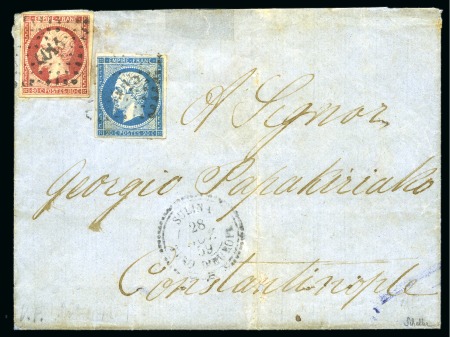 EMPIRE FRANC
80 C POSTES 80 C
EMPIRE FRANC
20 C POSTES 20 C
A Signor
Georgio Papakiriako
SULINA
28
59
Constantinople